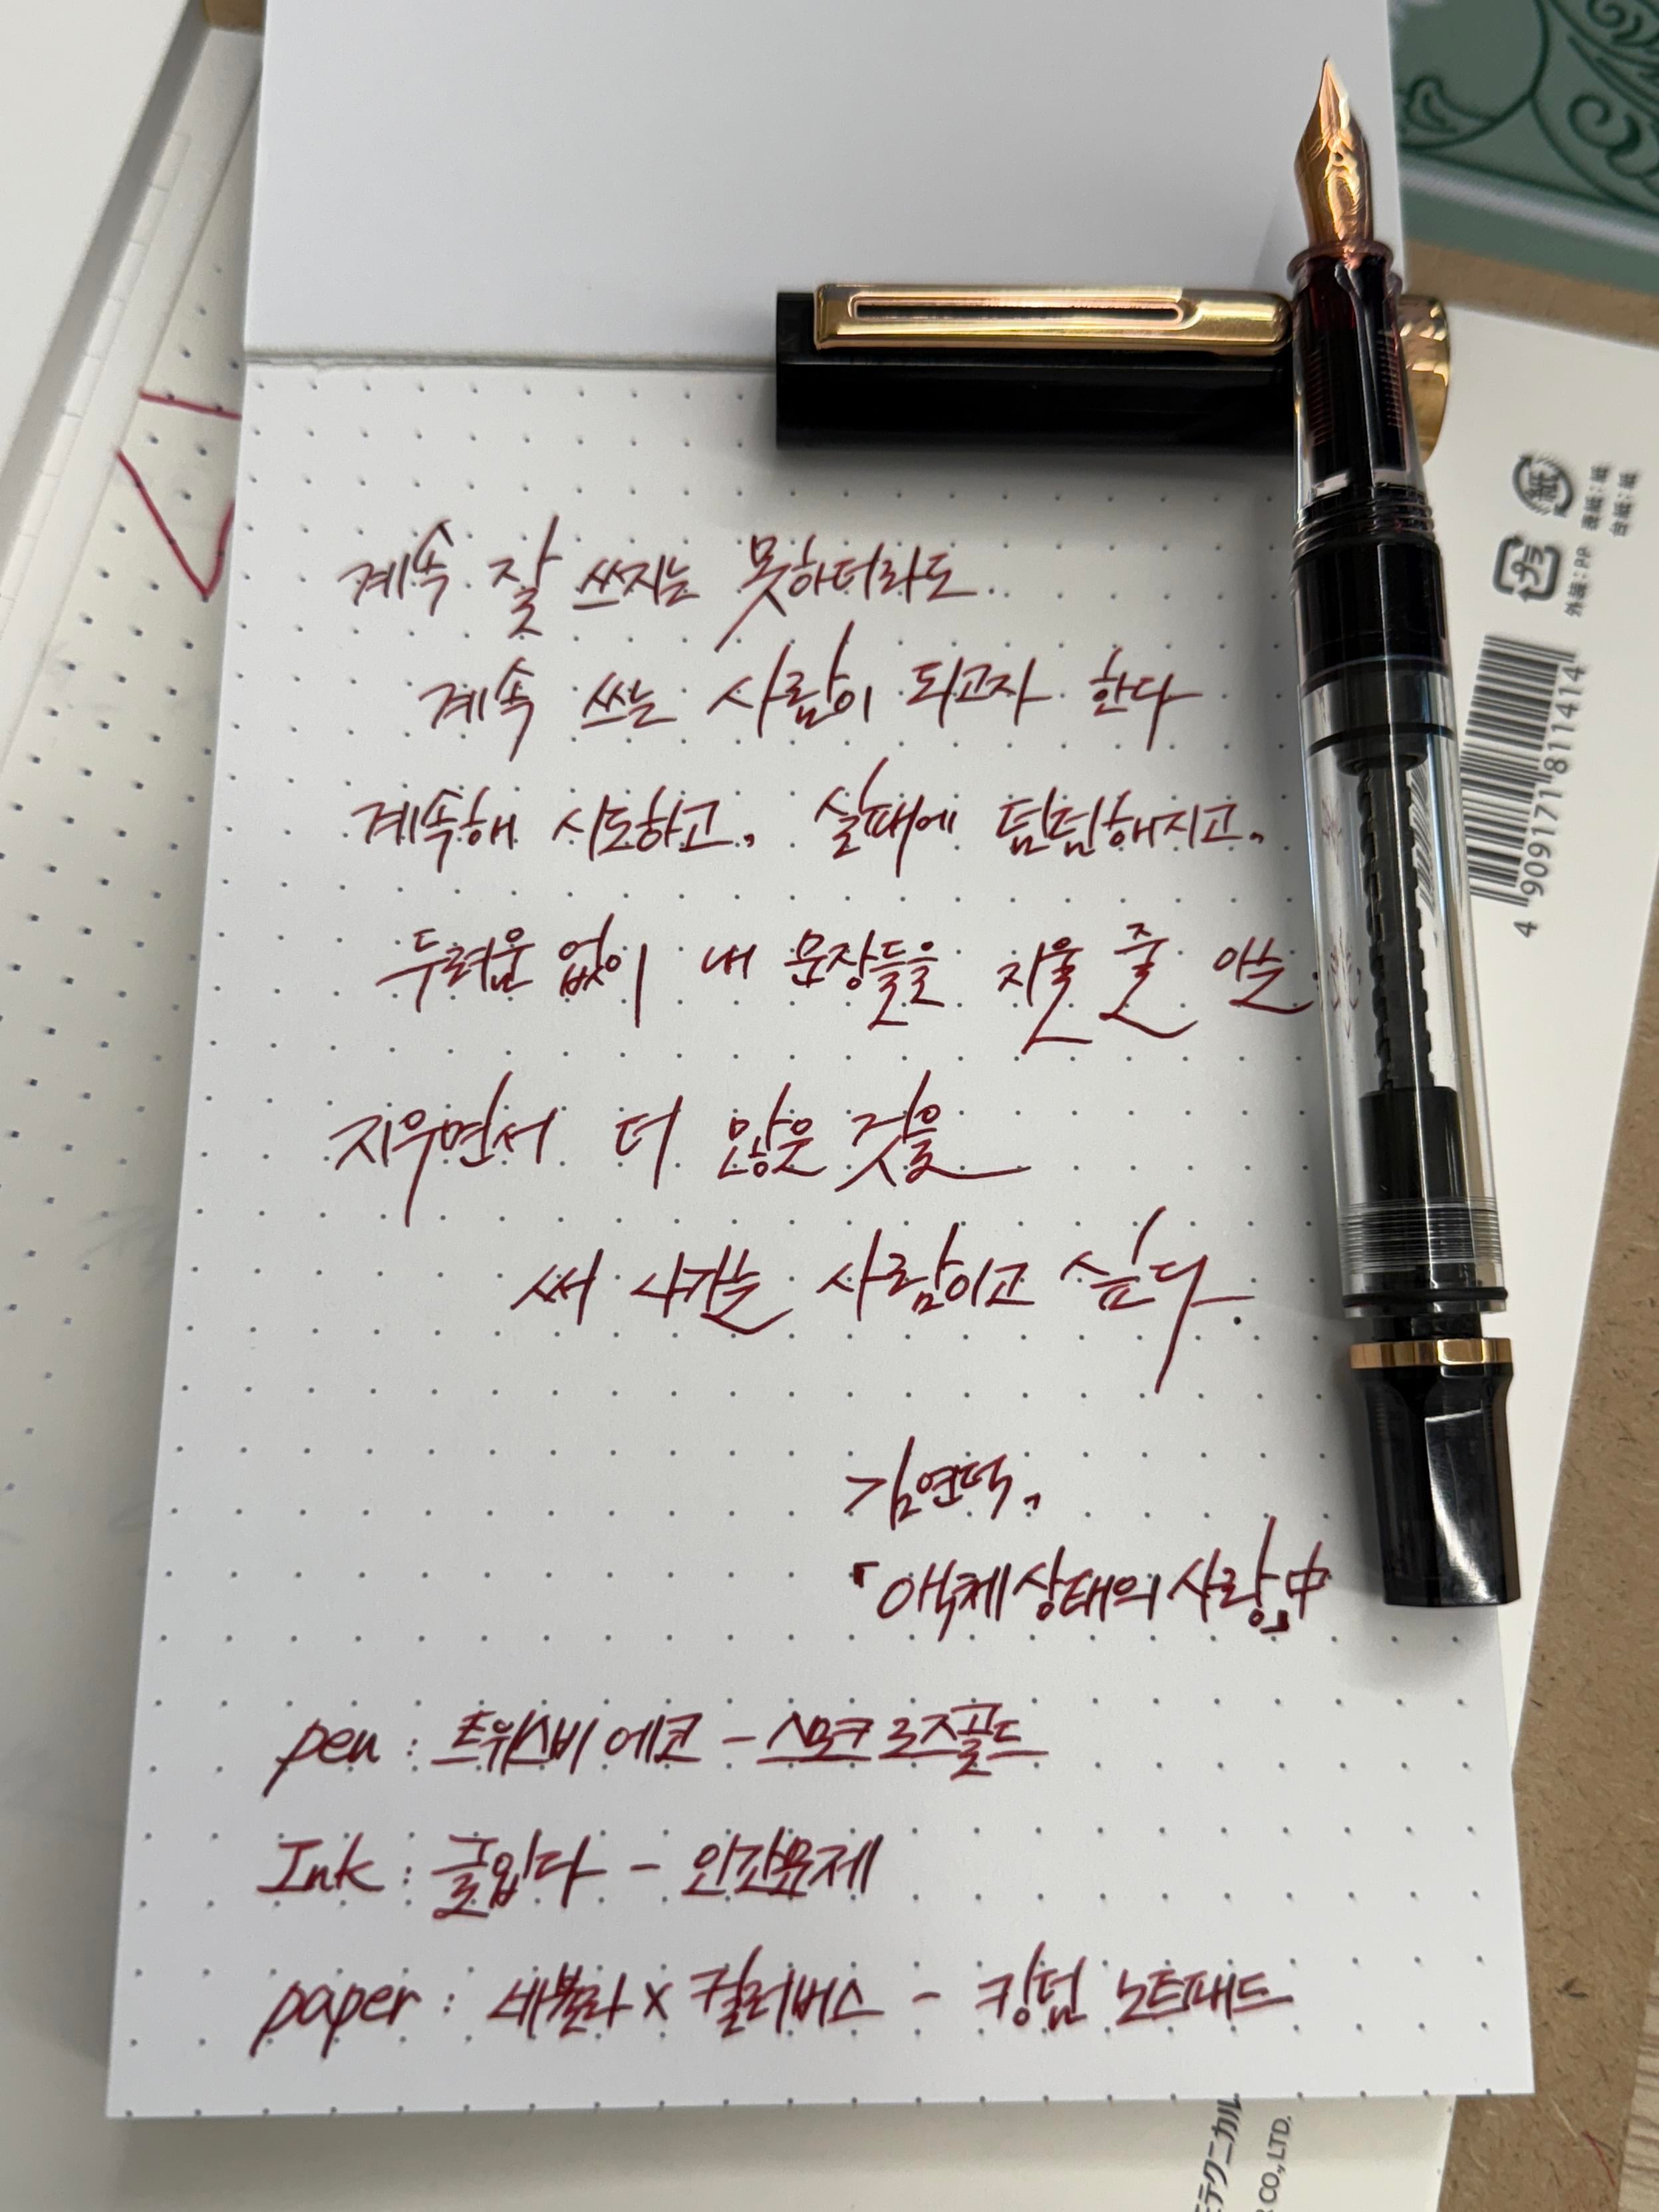 계속 잘 쓰지는 못하더라도
계속 쓰는 사람이 되고자 한다
계속해 시도하고, 실패에 덤덤해지고,
두려움 없이 내 문장들을 지울 줄 아는,
지우면서 더 많은 것을
써 나가는 사람이고 싶다.
김연덕,
「액체 상태의 사랑」中
pen : 트위스비 에코 - 스모크 로즈골드
Ink : 글입다 - 인간문제
paper : 네뷸라 x 컬러버스 - 킹덤 노트패드
紙
プラ
外装:PP
表紙:紙
台紙:紙
4 909171 811414
テクニカル
CO.,LTD.